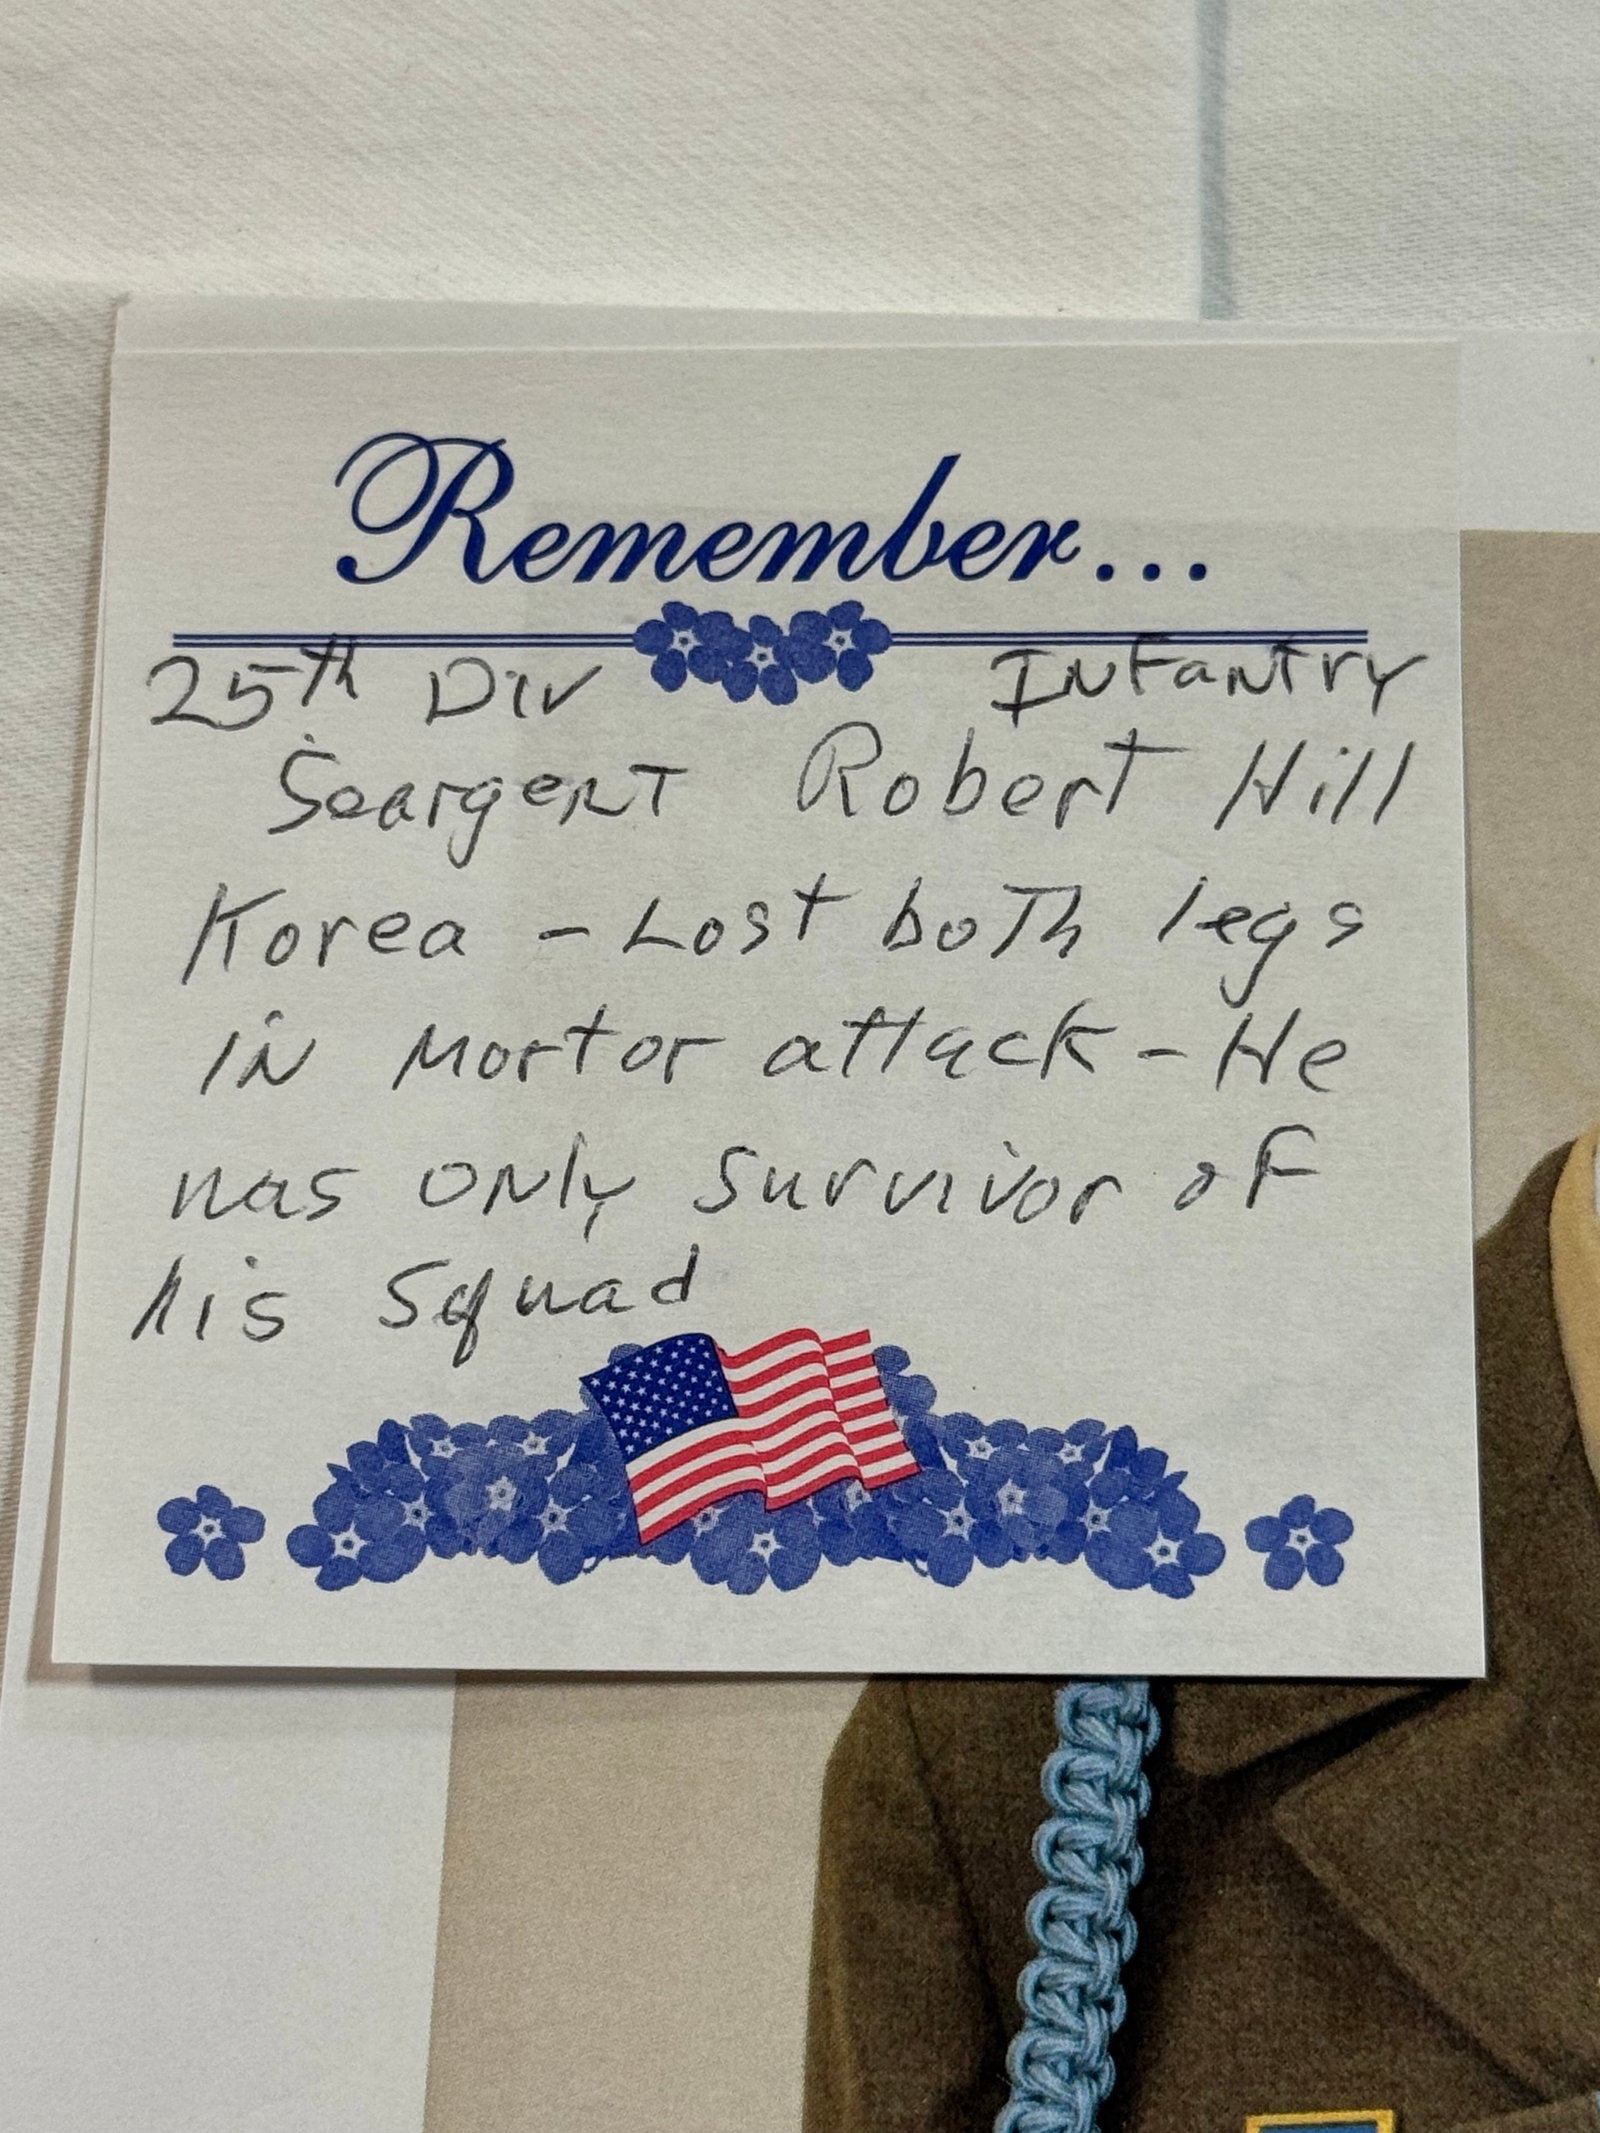 Remember...
25th Div Infantry
Seargent Robert Hill
Korea - Lost both legs
in Mortor attack - He
was only survivor of
his squad